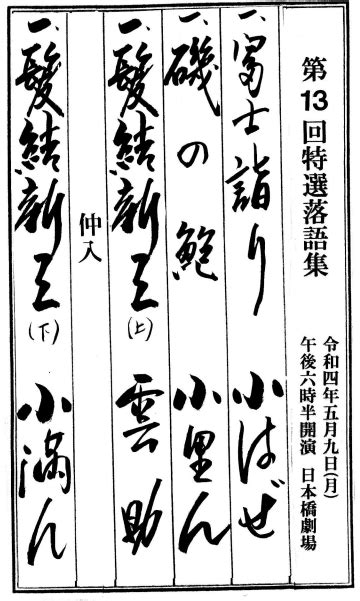 第13回特選落語集
令和四年五月九日(月)
午後六時半開演 日本橋劇場
一、富士詣り 小はぜ
一、磯の鮑 小里ん
一、髪結新三(上) 雲助
仲入
一、髪結新三(下) 小満ん